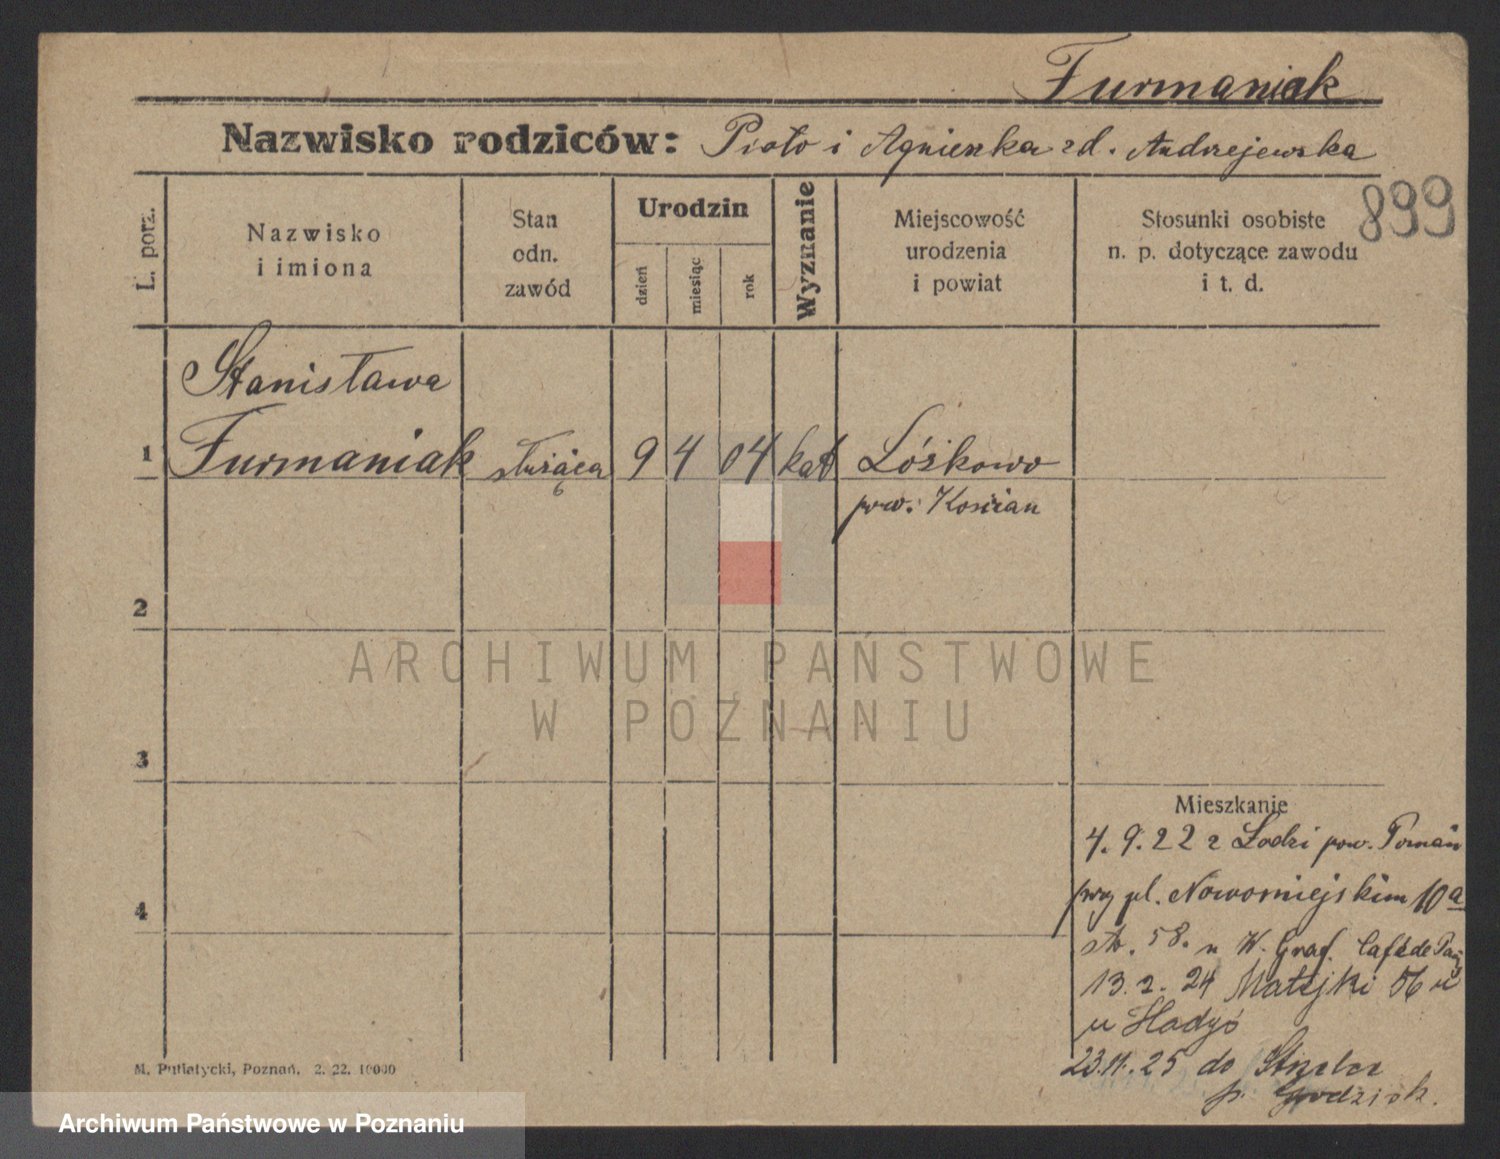 Furmaniak
Nazwisko rodziców: Piotr i Agnieszka zd. Andrzejewska
899
L. porz.
Nazwisko
i imiona
Stan
odn.
zawód
Urodzin
dzień
miesiąc
rok
Wyznanie
Miejscowość
urodzenia
i powiat
Stosunki osobiste
n. p. dotyczące zawodu
i t. d.
Stanisława
1 Furmaniak służąca 9 4 04 kat Łóżkowo
pow. Kościan
2
ARCHIWUM PAŃSTWOWE
W POZNANIU
3
Mieszkanie
4. 9. 22 z Łodzi pow. Poznań
przy pl. Nowomiejskim 10a
4
str. 58. u W. Graf. Café de
13. 2. 24 Matejki 56
u
23.11.25 do
p. Grodzisk.
M. Putiatycki, Poznań. 2. 22. 10000
Archiwum Państwowe w Poznaniu